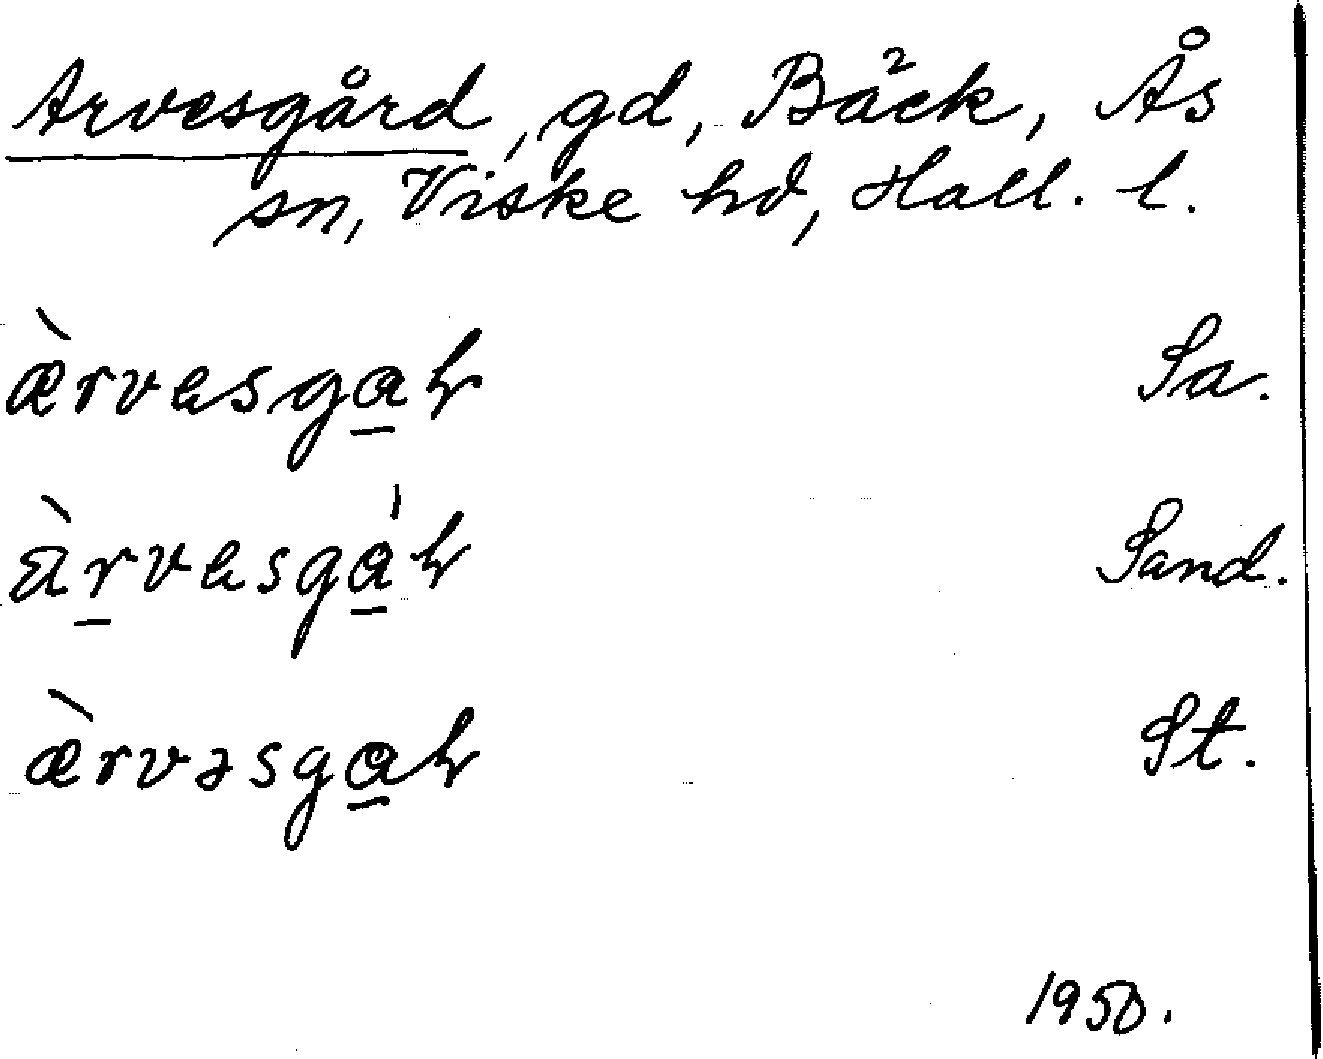 Arvesgård, gd, Bäck, Ås
sn, Viske hd, Hall. l.
æ̀rvesga̲ɫr Sa.
æ̀r̲vesgá̲ɫr Sand.
æ̀rvəsga̲ɫr St.
1950.